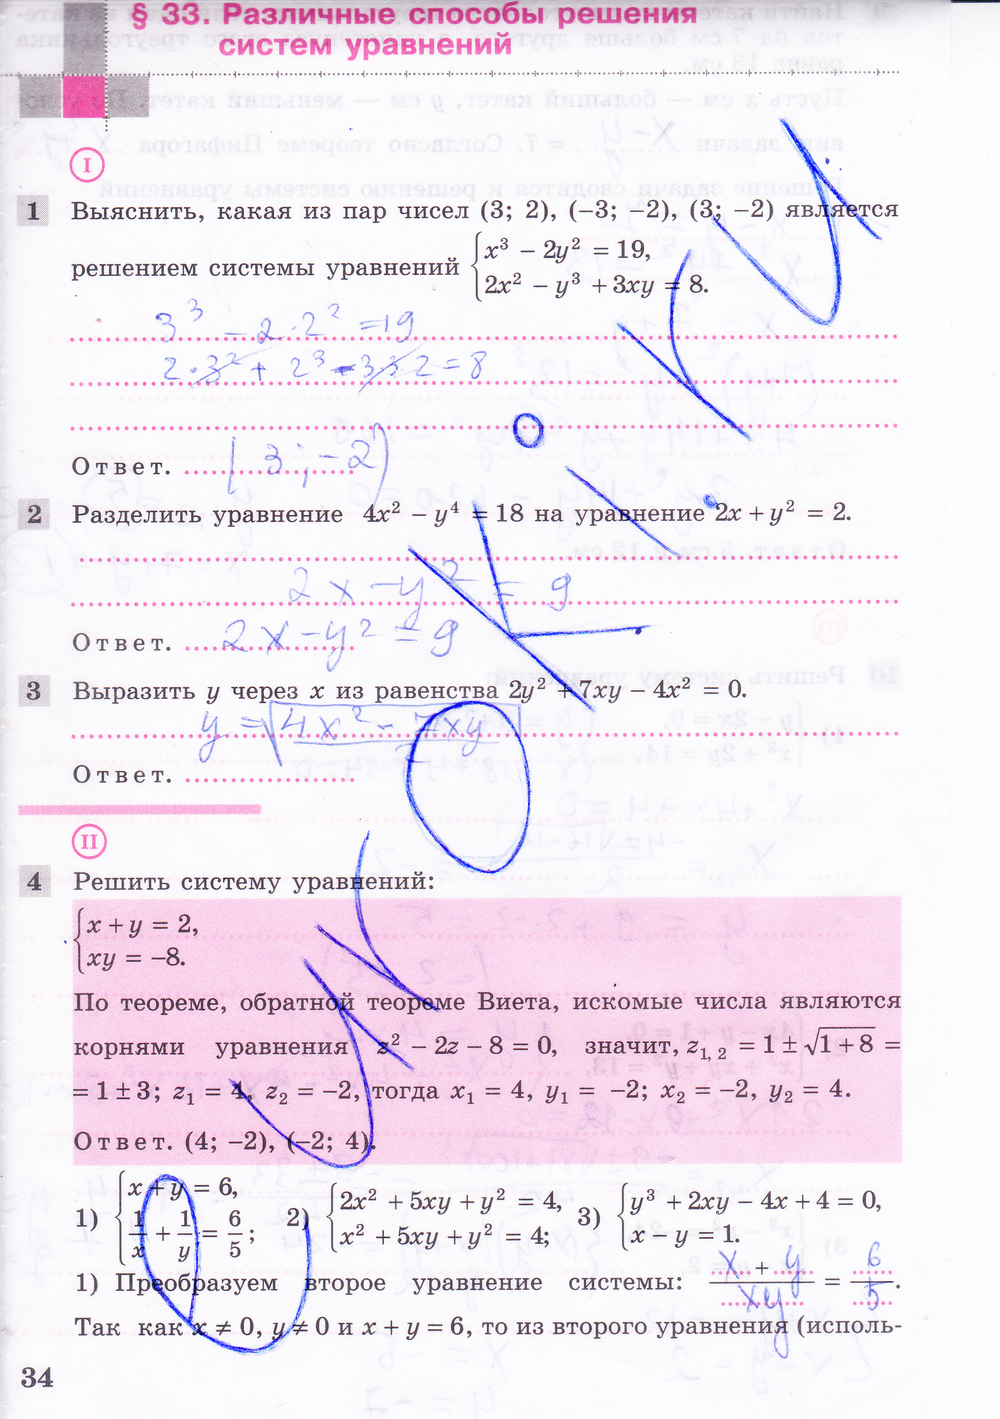 § 33. Различные способы решения
систем уравнений
I
1 Выяснить, какая из пар чисел (3; 2), (−3; −2), (3; −2) является
решением системы уравнений { x³ − 2y² = 19,
2x² − y³ + 3xy = 8.
3³ − 2·2² = 19
2·3² + 2³ − 3·3·2 = 8
Ответ. (3; −2)
2 Разделить уравнение 4x² − y⁴ = 18 на уравнение 2x + y² = 2.
2x − y² = 9
Ответ. 2x − y² = 9
3 Выразить y через x из равенства 2y² + 7xy − 4x² = 0.
y = √4x² − 7xy
Ответ.
II
4 Решить систему уравнений:
{ x + y = 2,
xy = −8.
По теореме, обратной теореме Виета, искомые числа являются
корнями уравнения z² − 2z − 8 = 0, значит, z₁, ₂ = 1 ± √1 + 8 =
= 1 ± 3; z₁ = 4, z₂ = −2, тогда x₁ = 4, y₁ = −2; x₂ = −2, y₂ = 4.
Ответ. (4; −2), (−2; 4).
1) { x + y = 6, 1/x + 1/y = 6/5; 2) { 2x² + 5xy + y² = 4, x² + 5xy + y² = 4; 3) { y³ + 2xy − 4x + 4 = 0, x − y = 1.
1) Преобразуем второе уравнение системы: x + y / xy = 6/5.
Так как x ≠ 0, y ≠ 0 и x + y = 6, то из второго уравнения (исполь-
34